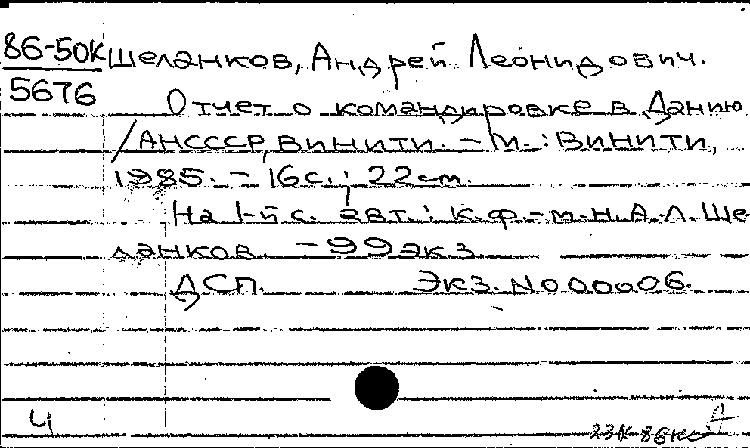 86-50К Шеланков, Андрей Леонидович.
5676
Отчет о командировке в Данию
/АНСССР, ВИНИТИ. – М.: ВИНИТИ,
1985. – 16 с.; 22 см.
На 1-й с. авт.: к.ф.-м.н. А.Л. Ше
ланков. – 99 экз.
ДСП. Экз. N 000006.
Ч